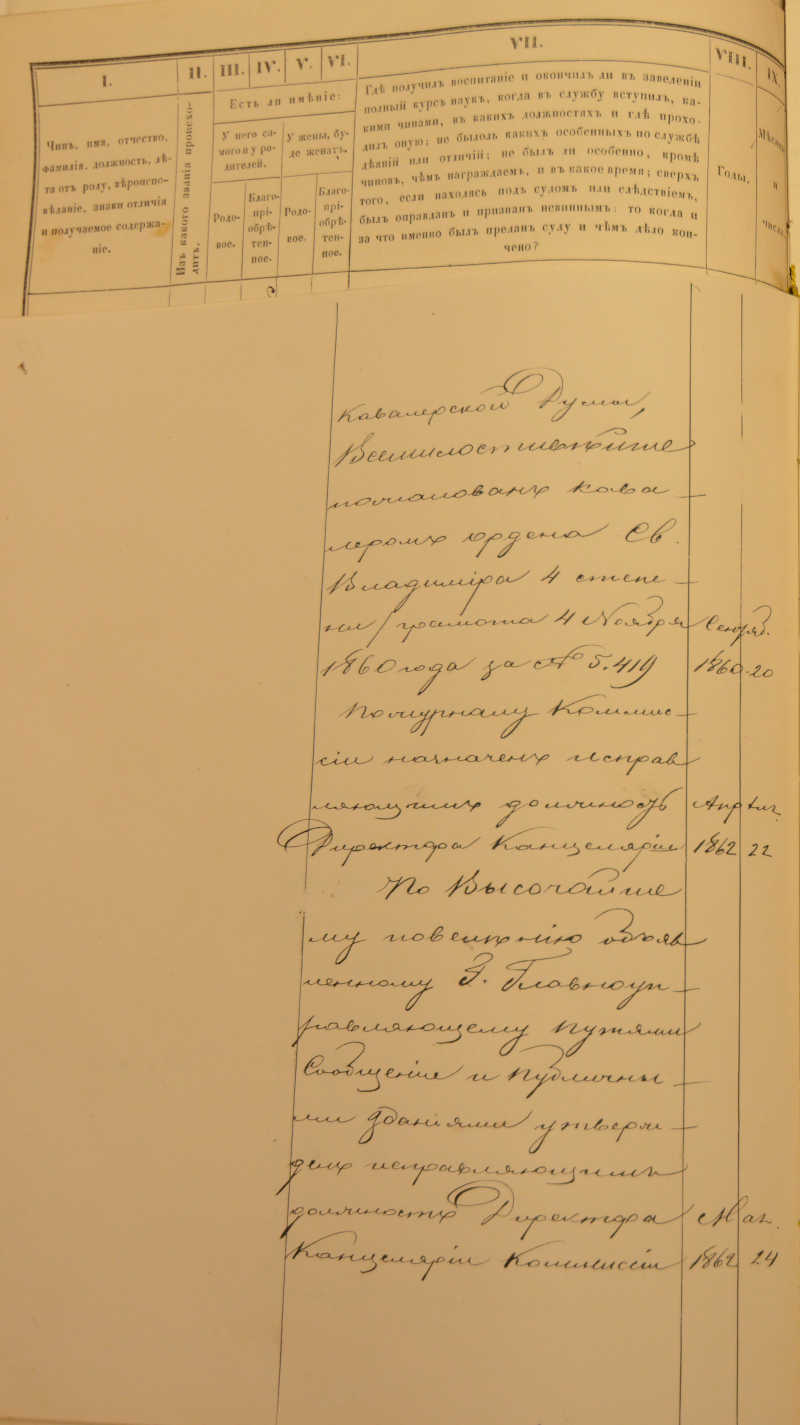 I.
II.
III.
IV.
V.
VI.
VII.
VIII.
IX.
Чинъ, имя, отчество,
фамилія, должность, лѣ-
та отъ роду, вѣроиспо-
вѣданіе, знаки отличія
и получаемое содержа-
ніе.
Изъ какого званія происхо-
дитъ.
Есть ли имѣніе:
У него са-
мого и у ро-
дителей.
У жены, бу-
де женатъ.
Родо-
вое.
Благо-
прі-
обрѣ-
тен-
ное.
Родо-
вое.
Благо-
прі-
обрѣ-
тен-
ное.
Гдѣ получилъ воспитаніе и окончилъ ли въ заведеніи
полный курсъ наукъ, когда въ службу вступилъ, ка-
кими чинами, въ какихъ должностяхъ и гдѣ прохо-
дилъ оную; не былоль какихъ особенныхъ по службѣ
дѣяній или отличій; не былъ ли особенно, кромѣ
чиновъ, чѣмъ награждаемъ, и въ какое время; сверхъ
того, если находясь подъ судомъ или слѣдствіемъ,
былъ оправданъ и признанъ невиннымъ: то когда и
за что именно былъ преданъ суду и чѣмъ дѣло кон-
чено?
Годы.
и
Числа.
Кавалерской Думы,
Всемилостивѣйше
пожалованъ Кава
леромъ ордена Св.
Владиміра 4 степе
ни /грамота 4 Ноября Сентяб.
1860 года за № 5.419 1860 20
По журналу Коммис
сіи назначенъ исправ
ляющимъ должность Апрѣля
Директора Канцеляріи 1862 22
По Высочайше
му повелѣнію объяв
ленному Г. Главноуп
равляющему Путями
Сообщенія и Публичны
ми зданіями утверж
денъ исправляющимъ
должность Директора Мая
Канцеляріи Коммиссіи 1862 24